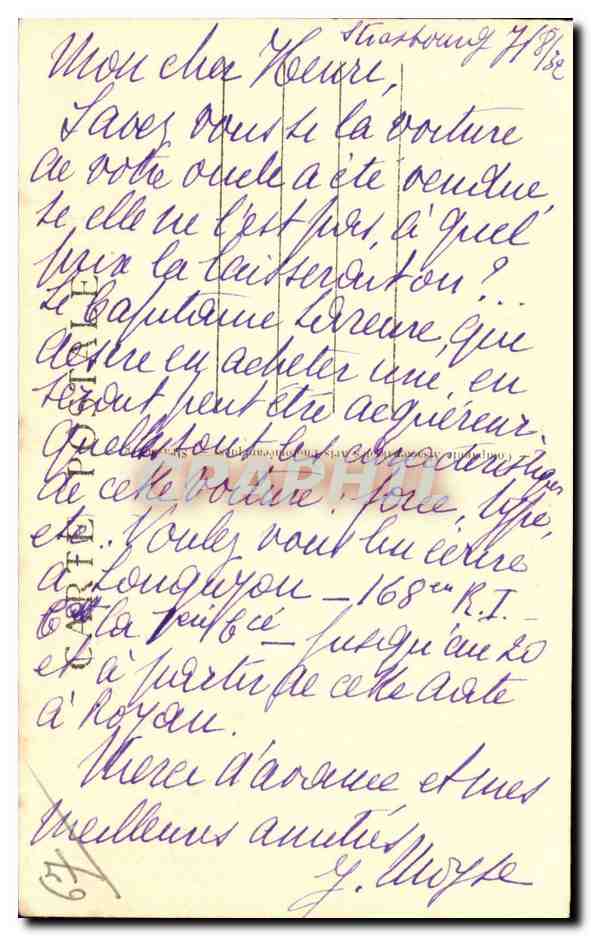 Strasbourg 7/8/32
Mon cher Henri,
Savez vous si la voiture
de votre oncle a été vendue,
si elle ne l'est pas, à quel
prix la laisserait on ? ..
Le Capitaine que
désire en acheter une, en
serait peut être acquéreur.
Quelles sont les caractéristiques
de cette voiture : force, type,
etc.. Voulez vous lui écrire
à Longuyon — 168em R.I. —
jusqu'au 20
et à partir de cette date
à Royan.
Merci d'avance et mes
meilleures amitiés
J. Moyse
CARTE POSTALE
CPAPHIL
67